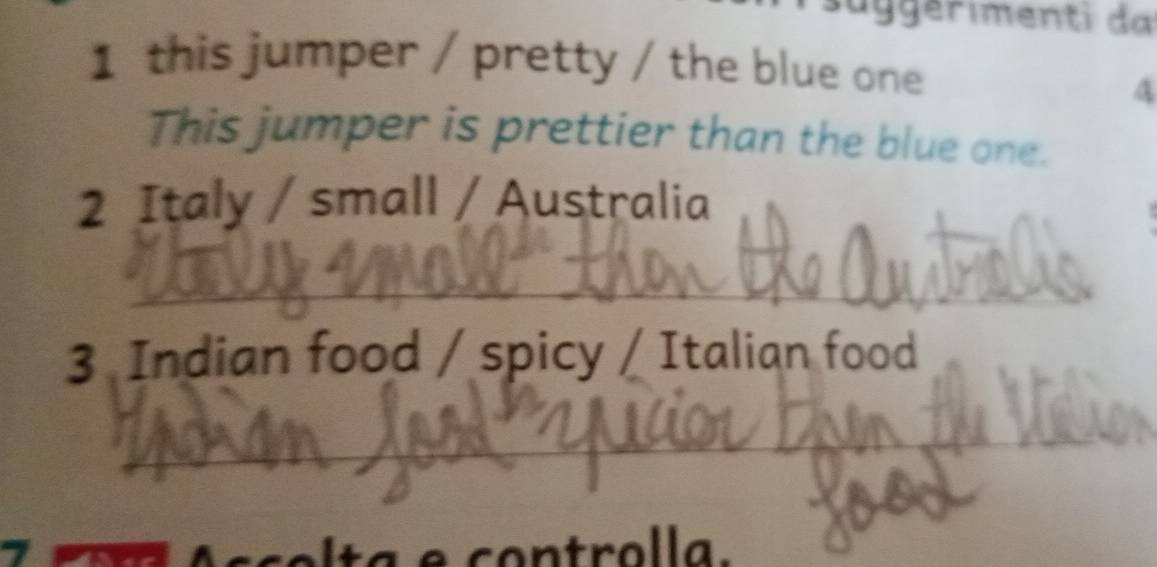 suggerimenti da
1 this jumper / pretty / the blue one
4
This jumper is prettier than the blue one.
2 Italy / small / Australia
than the Australia
3 Indian food / spicy / Italian food
Indian food spicior then the Italian
food
7 Ascolta e controlla.